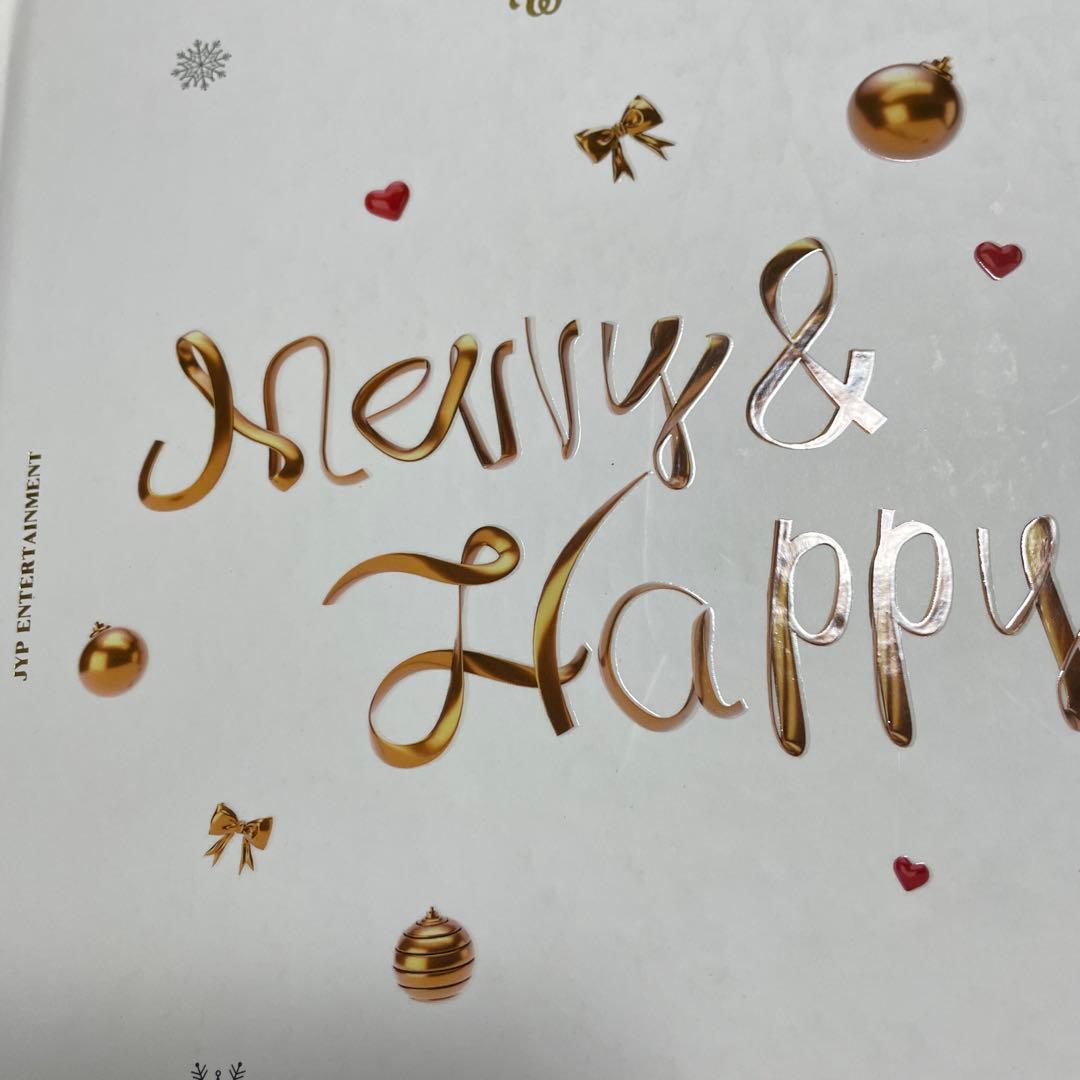 Merry &
Happy
JYP ENTERTAINMENT